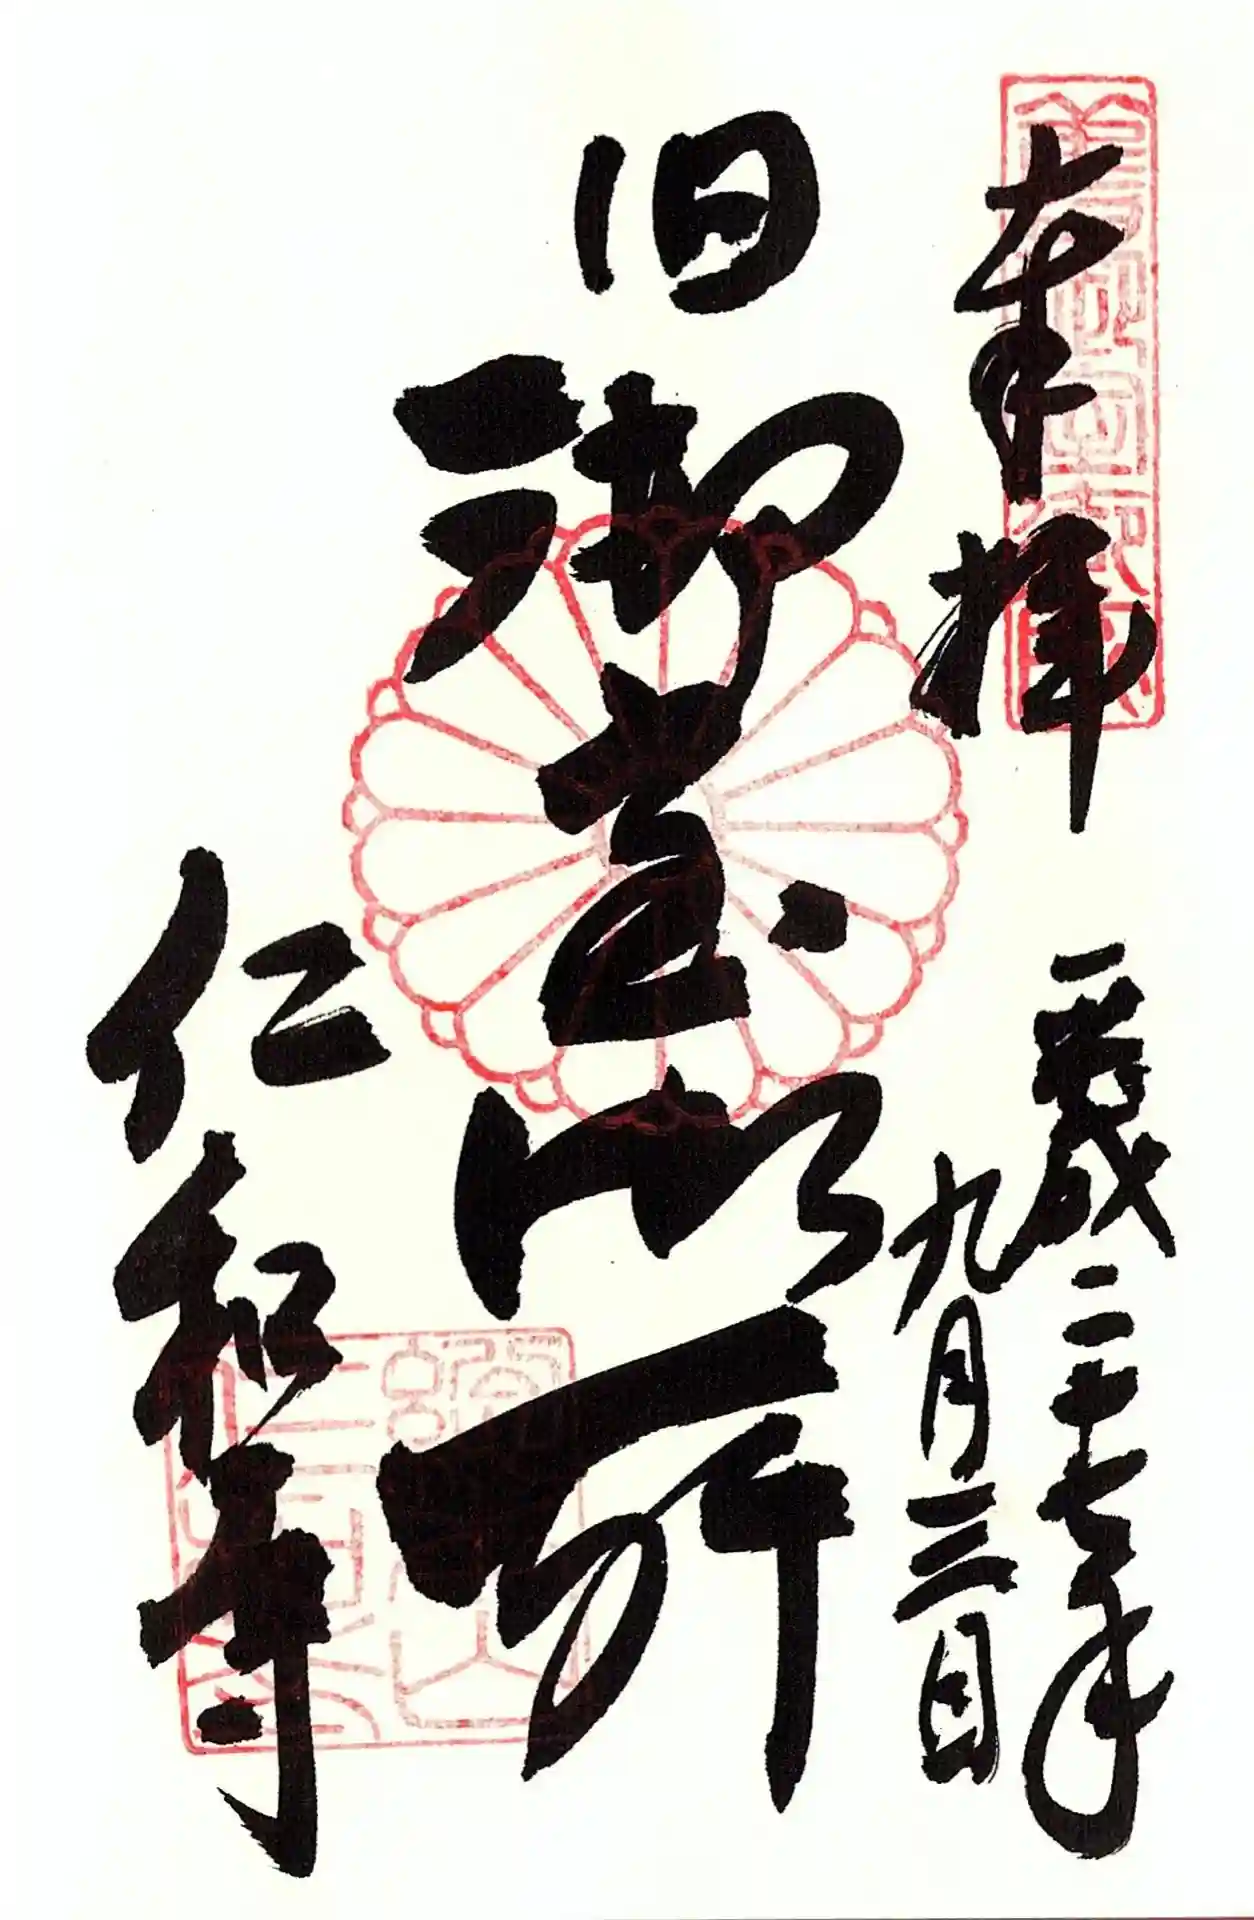 奉拝
平成二十七年
九月三日
旧御室御所
仁和寺